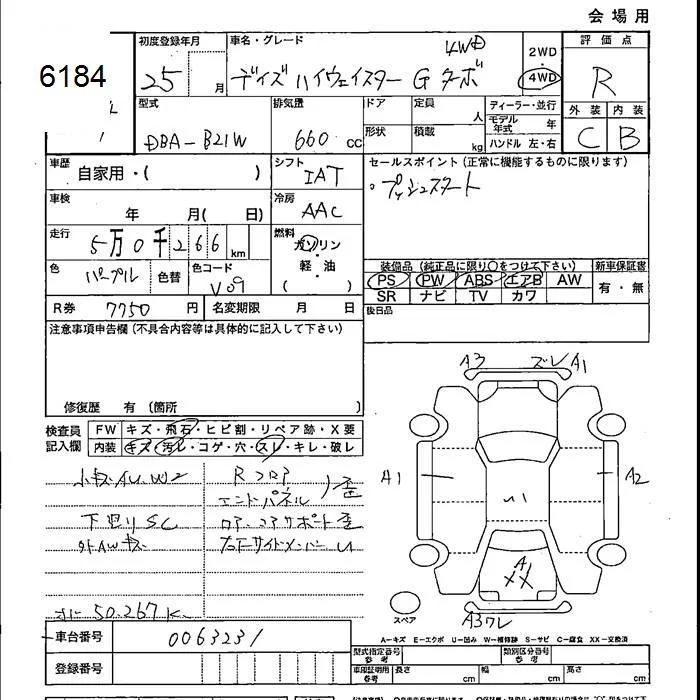 会場用
6184
初度登録年月 25 月
車名・グレード デイズ ハイウェイスター G ターボ 4WD
2WD
4WD
評価点
R
型式 DBA-B21W
排気量 660 cc
ドア
定員 人
形状
積載 kg
ディーラー・並行
モデル年式 年
ハンドル 左・右
外装 内装
C B
車歴 自家用・( )
シフト IAT
セールスポイント(正常に機能するものに限ります)
。プッシュスタート
車検 年 月( 日)
冷房 AAC
走行 5万0千266 km
燃料 ガソリン・軽油
( )
色 パープル 色替
色コード V09
装備品(純正品に限り〇をつけて下さい) 新車保証書
PS PW ABS エアB AW
SR ナビ TV カワ
有・無
R券 7750 円
名変期限 月 日
後日品
注意事項申告欄(不具合内容等は具体的に記入して下さい)
修復歴 有(箇所 )
検査員記入欄
FW キズ・飛石・ヒビ割・リペア跡・X要
内装 キズ・汚レ・コゲ・穴・スレ・キレ・破レ
小キズ AU.W2
下廻り SC
外AWキズ
Rフロア
エンドパネル 歪
ロア・コアサポート歪
右Fサイドメンバー U
メーター 50,267K
A3 ズレ A1
A1
A2
U1
A1
XX
A3 ワレ
スペア
A-キズ E-エクボ U-凹み W-補修跡 S-サビ C-腐食 XX-交換済
車台番号 0063231
登録番号
型式指定番号 参考
類別区分番号 参考
車両証明用 参考
長さ cm
幅 cm
高さ cm